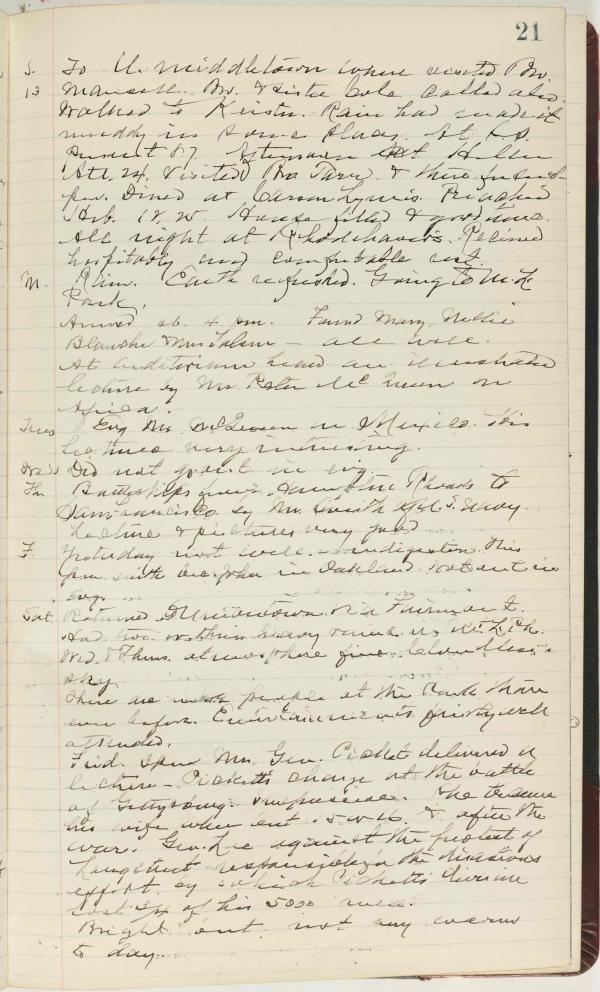 21
S. To U. Middletown where visited Bro.
13 Mansell. Bro. & Sister Cole called also.
Walked to Keister. Rain had made it
muddy in some places. At S.S.
present 87. Afternoon at
Att. 24. Visited Bro & three
Dined at Carson Lynn's. Preached
Heb. 12.25. House filled & good time.
All night at Rhodehaver's. Received
hospitably and comfortable rest.
M. Rain. Earth refreshed. Going to Mt. L.
Park.
Arrived ab. 4 pm. Found Mary, Nellie
Blanche & Mrs — all well.
At Auditorium heard an illustrated
lecture by Mr. Peter McQueen on
Africa.
Tues Evg Mr. McQueen on Mexico. His
lectures very interesting.
Wed Did not go out in evg.
Th. Battleships from Hampton Rhoads to
San Francisco by Mr. of U.S. Navy.
Lecture & pictures very good
F. Yesterday not well – indigestion. This
pm with Bro. John in Oakland. Not out in
evg.
Sat. Returned to Uniontown via Fairmont.
had two or three heavy rains in Mt. L. Pk.
Wed. & Thurs. atmosphere fine. Cloudless
sky.
There are more people at the Park than
ever before. Entertainments fairly well
attended.
Frid. 3 pm Mrs. Gen. Picket delivered a
lecture – Pickett's charge at the battle
of Gettysburg. Impressive. She became
his wife when but 15 & after the
war. Gen. Lee against the protest of
Longstreet responsible for the disastrous
effort by which Pickett's division
lost 3/4 of his 5000 men.
Bright but not any warm
to day.